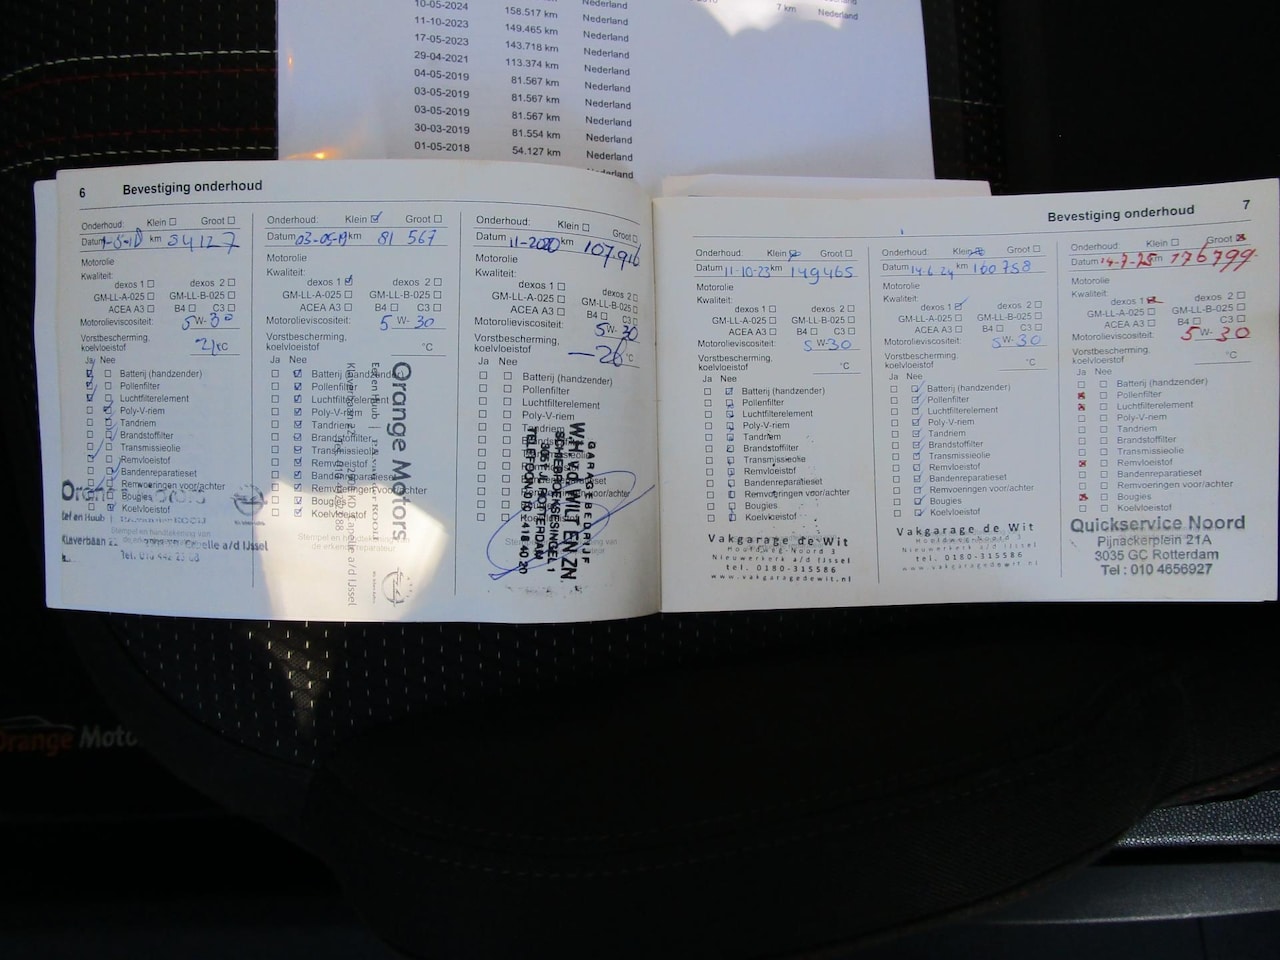 10-05-2024 158.517 km Nederland
7 km Nederland
11-10-2023 149.465 km Nederland
17-05-2023 143.718 km Nederland
29-04-2021 113.374 km Nederland
04-05-2019 81.567 km Nederland
03-05-2019 81.567 km Nederland
03-05-2019 81.567 km Nederland
30-03-2019 81.554 km Nederland
01-05-2018 54.127 km Nederland
6 Bevestiging onderhoud
Onderhoud: Klein Groot
Datum 1-5-18 km 54127
Motorolie
Kwaliteit:
dexos 1 dexos 2
GM-LL-A-025 GM-LL-B-025
ACEA A3 B4 C3
Motorolieviscositeit: 5 W- 30
Vorstbescherming,
koelvloeistof °C
Ja Nee
Batterij (handzender)
Pollenfilter
Luchtfilterelement
Poly-V-riem
Tandriem
Brandstoffilter
Transmissieolie
Remvloeistof
Bandenreparatieset
Remvoeringen voor/achter
Bougies
Koelvloeistof
Capelle a/d IJssel
Onderhoud: Klein Groot
Datum 03-05-19 km 81 567
Motorolie
Kwaliteit:
dexos 1 dexos 2
GM-LL-A-025 GM-LL-B-025
ACEA A3 B4 C3
Motorolieviscositeit: 5 W- 30
Vorstbescherming,
koelvloeistof °C
Ja Nee
Batterij (handzender)
Pollenfilter
Luchtfilterelement
Poly-V-riem
Tandriem
Brandstoffilter
Transmissieolie
Remvloeistof
Bandenreparatieset
Remvoeringen voor/achter
Bougies
Koelvloeistof
Orange Motors
Capelle a/d IJssel
Onderhoud: Klein Groot
Datum 11-2020 km 107916
Motorolie
Kwaliteit:
dexos 1 dexos 2
GM-LL-A-025 GM-LL-B-025
ACEA A3 B4 C3
Motorolieviscositeit: 5 W- 30
Vorstbescherming,
koelvloeistof -26 °C
Ja Nee
Batterij (handzender)
Pollenfilter
Luchtfilterelement
Poly-V-riem
Tandriem
GARAGEBEDRIJF
W.H. v.d. WILT EN ZN.
SCHIEBROEKSESINGEL 1
ROTTERDAM
TELEFOON 010 - 418 40 20
Bevestiging onderhoud 7
Onderhoud: Klein Groot
Datum 11-10-23 km 149465
Motorolie
Kwaliteit:
dexos 1 dexos 2
GM-LL-A-025 GM-LL-B-025
ACEA A3 B4 C3
Motorolieviscositeit: 5 W- 30
Vorstbescherming,
koelvloeistof °C
Ja Nee
Batterij (handzender)
Pollenfilter
Luchtfilterelement
Poly-V-riem
Tandriem
Brandstoffilter
Transmissieolie
Remvloeistof
Bandenreparatieset
Remvoeringen voor/achter
Bougies
Koelvloeistof
Vakgarage de Wit
Hoofdweg-Noord 3
Nieuwerkerk a/d IJssel
tel. 0180-315586
www.vakgaragedewit.nl
Onderhoud: Klein Groot
Datum 14-6-24 km 160758
Motorolie
Kwaliteit:
dexos 1 dexos 2
GM-LL-A-025 GM-LL-B-025
ACEA A3 B4 C3
Motorolieviscositeit: 5 W- 30
Vorstbescherming,
koelvloeistof °C
Ja Nee
Batterij (handzender)
Pollenfilter
Luchtfilterelement
Poly-V-riem
Tandriem
Brandstoffilter
Transmissieolie
Remvloeistof
Bandenreparatieset
Remvoeringen voor/achter
Bougies
Koelvloeistof
Vakgarage de Wit
Hoofdweg-Noord 3
Nieuwerkerk a/d IJssel
tel. 0180-315586
www.vakgaragedewit.nl
Onderhoud: Klein Groot
Datum 14-7-25 km 176799
Motorolie
Kwaliteit:
dexos 1 dexos 2
GM-LL-A-025 GM-LL-B-025
ACEA A3 B4 C3
Motorolieviscositeit: 5 W- 30
Vorstbescherming,
koelvloeistof °C
Ja Nee
Batterij (handzender)
Pollenfilter
Luchtfilterelement
Poly-V-riem
Tandriem
Brandstoffilter
Transmissieolie
Remvloeistof
Bandenreparatieset
Remvoeringen voor/achter
Bougies
Koelvloeistof
Quickservice Noord
Pijnackerplein 21A
3035 GC Rotterdam
Tel : 010 4656927
Orange Moto